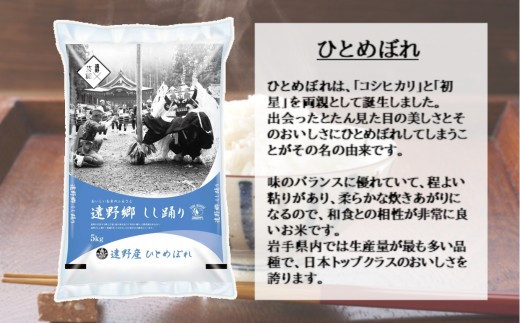 ひとめぼれ
ひとめぼれは、「コシヒカリ」と「初
星」を両親として誕生しました。
出会ったとたん見た目の美しさとそ
のおいしさにひとめぼれしてしまうこ
とがその名の由来です。
味のバランスに優れていて、程よい
粘りがあり、柔らかな炊きあがりに
なるので、和食との相性が非常に良
いお米です。
岩手県内では生産量が最も多い品
種で、日本トップクラスのおいしさを
誇ります。
遠野郷 しし踊り
5kg
遠野産 ひとめぼれ